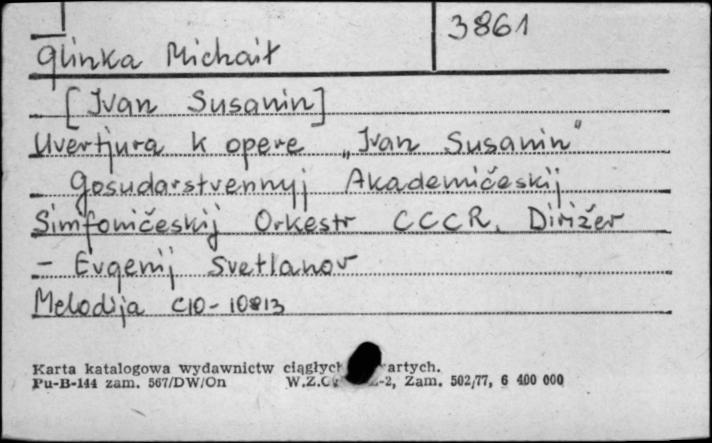 3861
Glinka Michaił
[Ivan Susanin]
Uvertjura k opere „Ivan Susanin"
Gosudarstvennyj Akademičeskij
Simfoničeskij Orkestr CCCR. Dirižer
- Evgenij Svetlanov
Melodija C10-10813
Karta katalogowa wydawnictw ciągłych artych.
Pu-B-144 zam. 567/DW/On W.Z.G -2, Zam. 502/77, 6 400 000